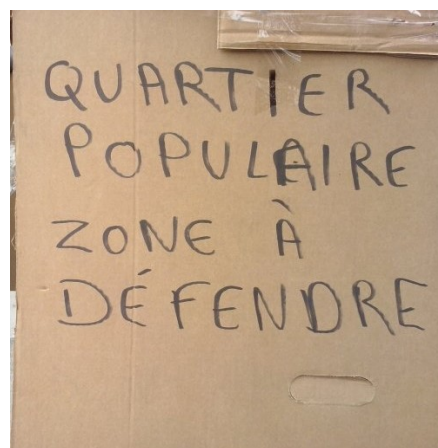 QUARTIER
POPULAIRE
ZONE À
DÉFENDRE